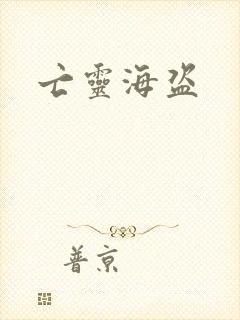 亡靈海盜
普京